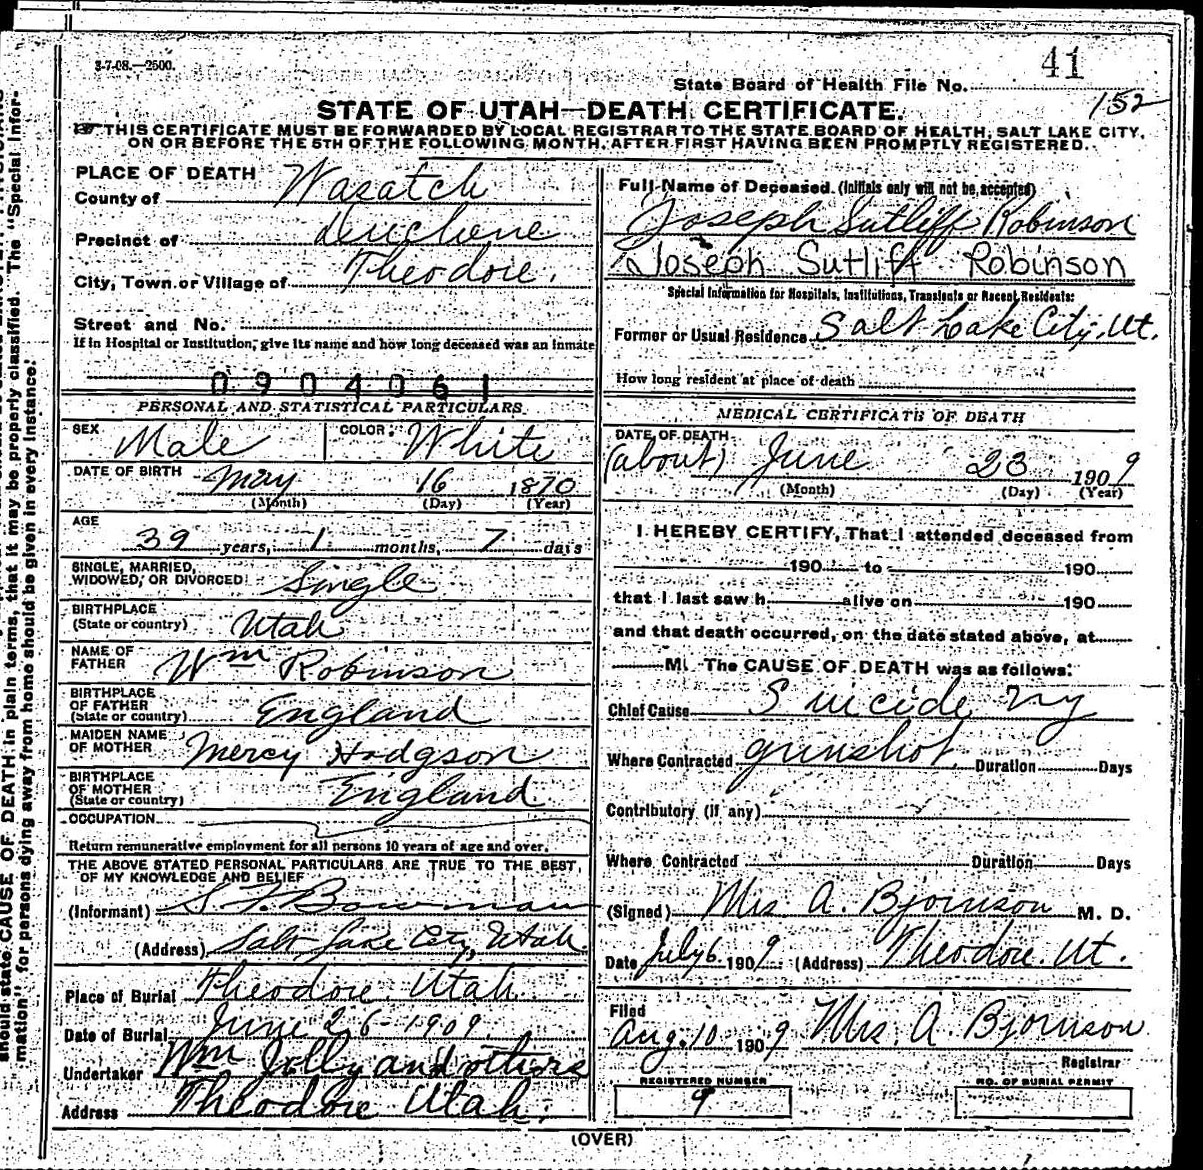 3-7-08.—2500.
41
State Board of Health File No.
152
STATE OF UTAH—DEATH CERTIFICATE.
☞ THIS CERTIFICATE MUST BE FORWARDED BY LOCAL REGISTRAR TO THE STATE BOARD OF HEALTH, SALT LAKE CITY,
ON OR BEFORE THE 5TH OF THE FOLLOWING MONTH, AFTER FIRST HAVING BEEN PROMPTLY REGISTERED.
PLACE OF DEATH
County of Wasatch
Precinct of Duchene
City, Town or Village of Theodore.
Street and No.
If in Hospital or Institution, give its name and how long deceased was an inmate
0904061
PERSONAL AND STATISTICAL PARTICULARS
SEX Male COLOR: White
DATE OF BIRTH May 16 1870
(Month) (Day) (Year)
AGE
39 years, 1 months, 7 days
SINGLE, MARRIED,
WIDOWED, OR DIVORCED Single
BIRTHPLACE
(State or country) Utah
NAME OF
FATHER Wm Robinson
BIRTHPLACE
OF FATHER
(State or country) England
MAIDEN NAME
OF MOTHER Mercy Hodgson
BIRTHPLACE
OF MOTHER
(State or country) England
OCCUPATION
Return remunerative employment for all persons 10 years of age and over.
THE ABOVE STATED PERSONAL PARTICULARS ARE TRUE TO THE BEST
OF MY KNOWLEDGE AND BELIEF
(Informant) S. F. Bowman
(Address) Salt Lake City, Utah
Place of Burial Theodore Utah
Date of Burial June 26-1909
Undertaker Wm Jolly and others
Address Theodore Utah.
Full Name of Deceased. (Initials only will not be accepted)
Joseph Sutliff Robinson
Joseph Sutliff Robinson
Special Information for Hospitals, Institutions, Transients or Recent Residents:
Former or Usual Residence Salt Lake City, Ut.
How long resident at place of death
MEDICAL CERTIFICATE OF DEATH
DATE OF DEATH
(about) June 23 1909
(Month) (Day) (Year)
I HEREBY CERTIFY, That I attended deceased from
190 to 190
that I last saw h alive on 190
and that death occurred, on the date stated above, at
M. The CAUSE OF DEATH was as follows:
Chief Cause Suicide by
Where Contracted gunshot Duration Days
Contributory (if any)
Where Contracted Duration Days
(Signed) Mrs A. Bjornson M. D.
Date July 6 1909. (Address) Theodore. Ut.
Filed
Aug. 10 1909 Mrs. A. Bjornson
Registrar
REGISTERED NUMBER NO. OF BURIAL PERMIT
9
(OVER)
should state CAUSE OF DEATH in plain terms, that it may be properly classified. The "Special Infor-
mation" for persons dying away from home should be given in every instance.